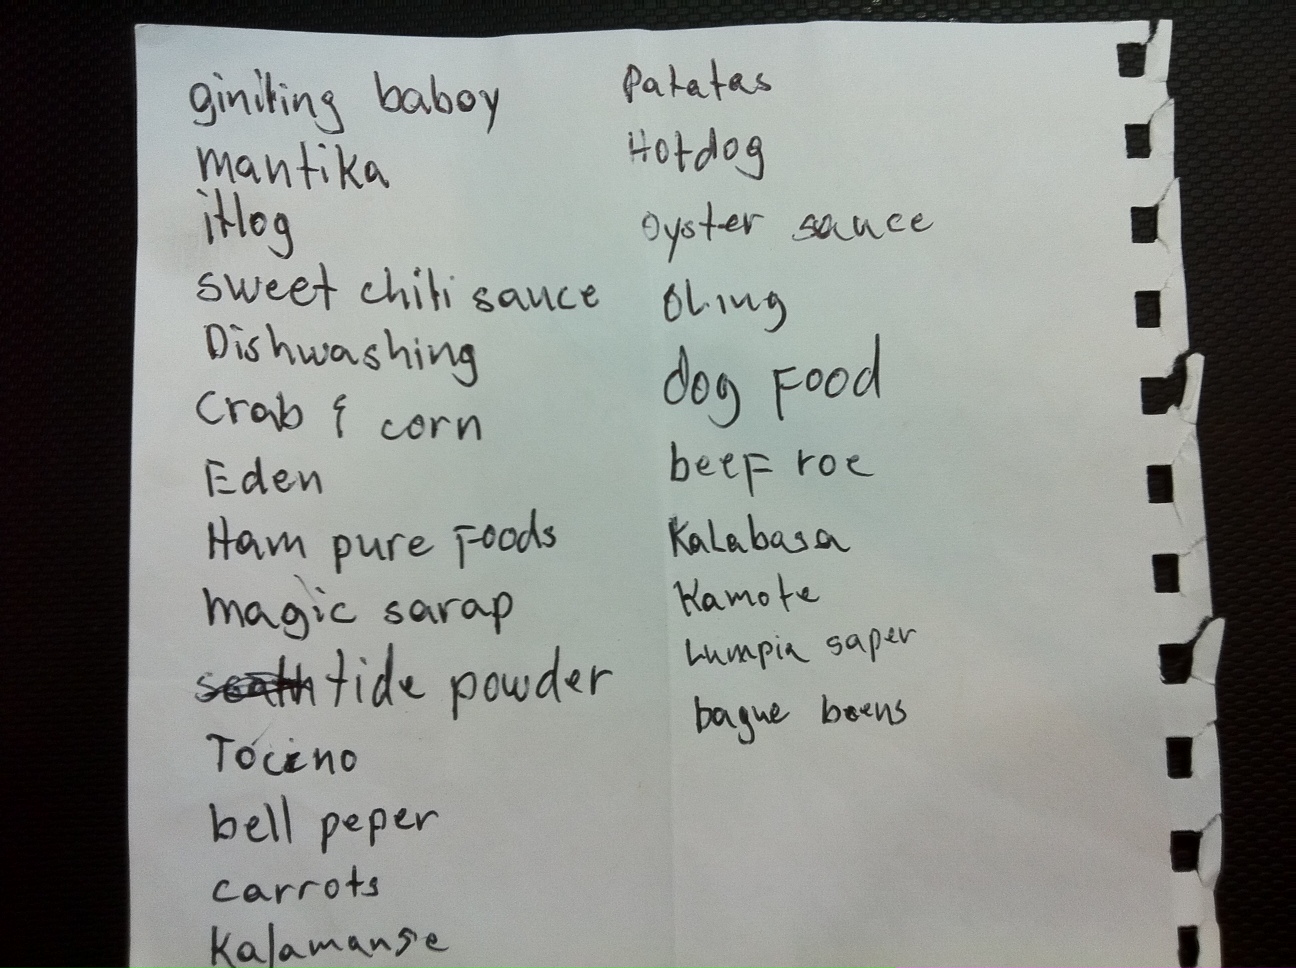 giniling baboy
mantika
itlog
sweet chili sauce
Dishwashing
Crab & corn
Eden
Ham pure Foods
magic sarap
tide powder
Tocino
bell peper
carrots
Kalamanse
Patatas
Hotdog
Oyster sauce
Oling
dog Food
beeF roe
Kalabasa
Kamote
Lumpia saper
bague beens